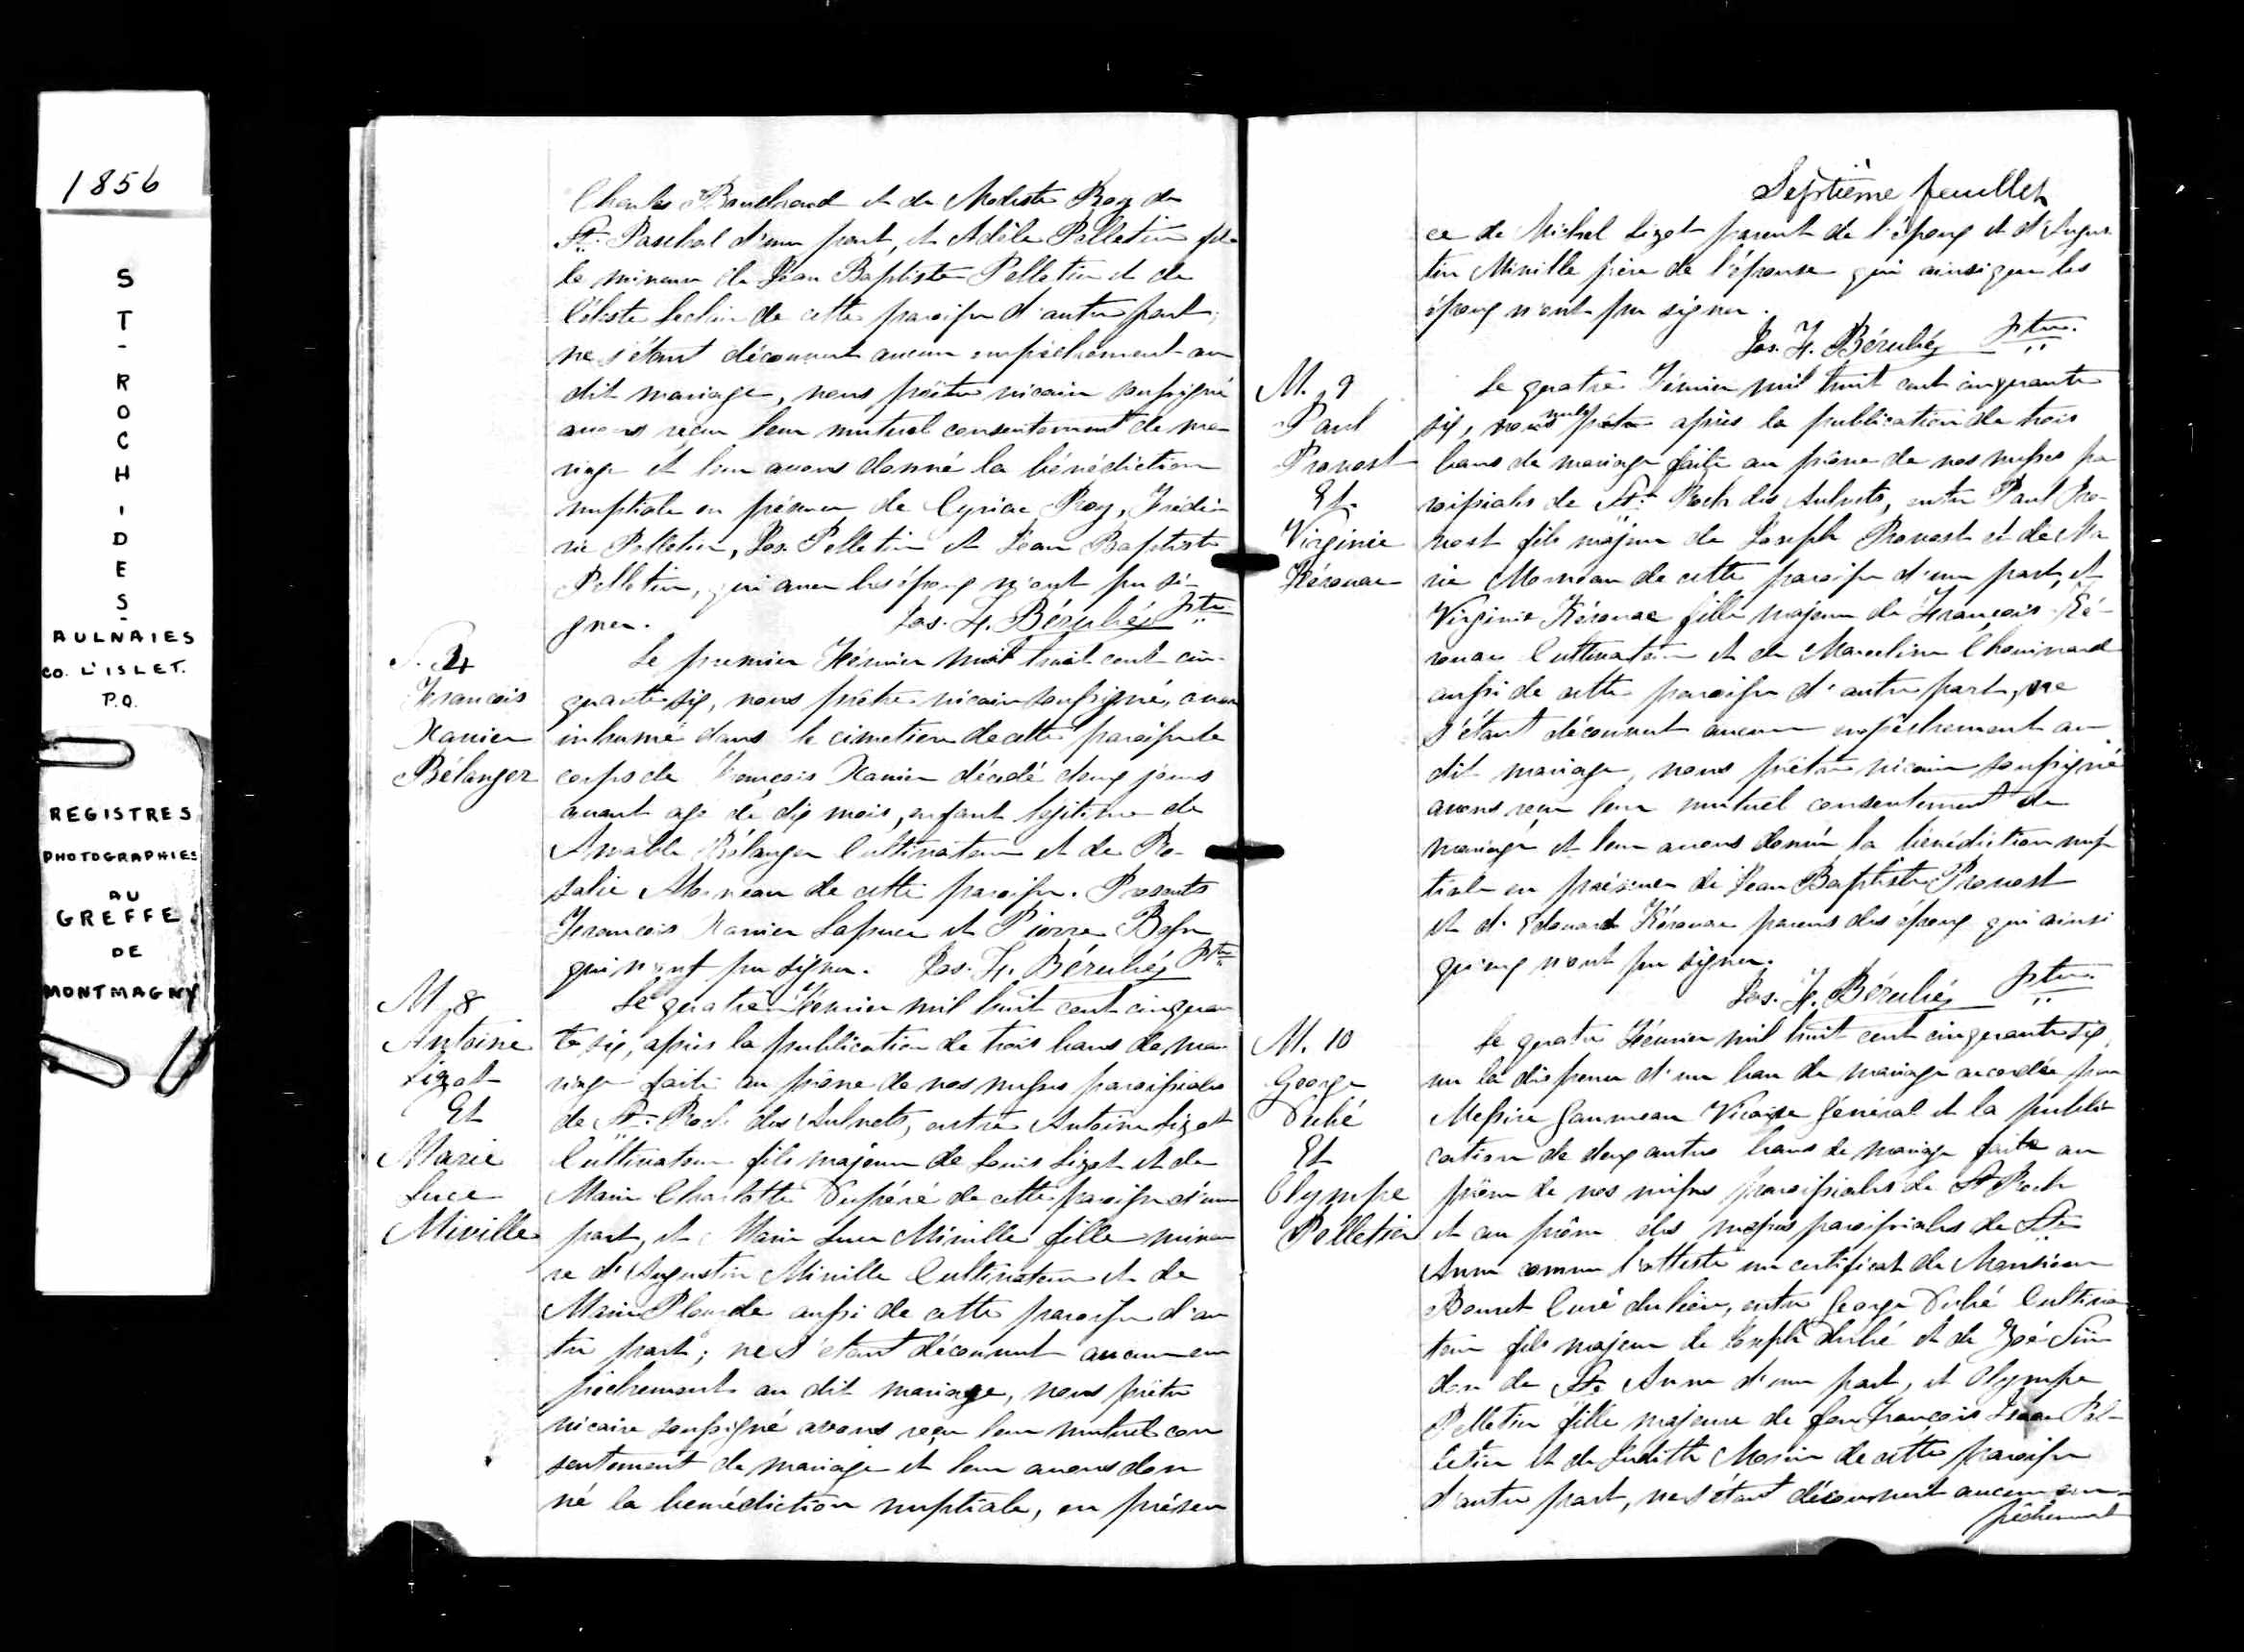 1856
ST-ROCH-DES-
AULNAIES
CO. L'ISLET.
P.Q.
REGISTRES
PHOTOGRAPHIES
AU
GREFFE
DE
MONTMAGNY
Charles Bouchard et de Modeste Roy de
St. Paschal d'une part, et Adèle Pelletier fil-
le mineure de Jean Baptiste Pelletier et de
Céleste de cette paroisse d'autre part,
ne s'étant découvert aucun empêchement au
dit mariage, nous prêtre vicaire soussigné
avons reçu leur mutuel consentement de ma-
riage et leur avons donné la bénédiction
nuptiale en présence de Cyriac Roy, Frédé-
ric Pelletier, Jos. Pelletier et Jean Baptiste
Pelletier, qui avec les époux n'ont pu si-
gner. Jos. H. Bérubé, Ptre.
S. 4
François
Xavier
Bélanger
Le premier Février mil huit cent cin-
quante six, nous prêtre vicaire soussigné, avons
inhumé dans le cimetière de cette paroisse le
corps de François Xavier décédé deux jours
avant agé de dix mois, enfant légitime de
Amable Bélanger Cultivateur et de Ro-
salie Morneau de cette paroisse. Présents
François Xavier et Pierre
qui n'ont pu signer. Jos. H. Bérubé, Ptre
M. 8
Antoine
Lizot
Et
Marie
Luce
Miville
Le quatre Février mil huit cent cinquan
te six, après la publication de trois bans de ma-
riage faite au prône de nos messes paroissiales
de St. Roch des Aulnets, entre Antoine Lizot
Cultivateur fils majeur de Louis Lizot et de
Marie Charlotte Dupéré de cette paroisse d'une
part, et Marie Luce Miville fille mineu
re d'Augustin Miville Cultivateur et de
Marie Plourde aussi de cette paroisse d'au
tre part; ne s'étant découvert aucun em
pêchement au dit mariage, nous prêtre
vicaire soussigné avons reçu leur mutuel con
sentement de mariage et leur avons don
né la bénédiction nuptiale, en présen
Septième feuillet
ce de Michel Lizot parent de l'époux et d'Augus
tin Miville père de l'épouse qui ainsi que les
époux n'ont pu signer.
Jos. H. Bérubé, Ptre.
M. 9
Paul
Provost
Et
Virginie
Kérouac
Le quatre Février mil huit cent cinquante
six, nous prêtre après la publication de trois
bans de mariage faite au prône de nos messes pa
roissiales de St. Roch des Aulnets, entre Paul Pro-
vost fils majeur de Joseph Provost et de Ma
rie Morneau de cette paroisse d'une part, et
Virginie Kérouac fille majeure de François Ké-
rouac Cultivateur et de Marceline Chouinard
aussi de cette paroisse d'autre part, ne
s'étant découvert aucun empêchement au
dit mariage, nous prêtre vicaire soussigné
avons reçu leur mutuel consentement de
mariage et leur avons donné la bénédiction nup
tiale en présence de Jean Baptiste Provost
et d'Edouard Kérouac parens des époux qui ainsi
qu'eux n'ont pu signer.
Jos. H. Bérubé, Ptre.
M. 10
George
Dubé
Et
Olympe
Pelletier
Le quatre Février mil huit cent cinquante six,
vu la dispense d'un ban de mariage accordée par
Messire Gauvreau Vicaire Général et la publi
cation de deux autres bans de mariage faite au
prône de nos messes paroissiales de St Roch
et au prône des messes paroissiales de Ste.
Anne comme l'atteste un certificat de Monsieur
Bourret Curé du lieu, entre George Dubé Cultiva
teur fils majeur de Joseph Dubé et de Zoé
de Ste Anne d'une part, et Olympe
Pelletier fille majeure de feu François Pel-
letier et de Judith Morin de cette paroisse
d'autre part, ne s'étant découvert aucun em-
pêchement